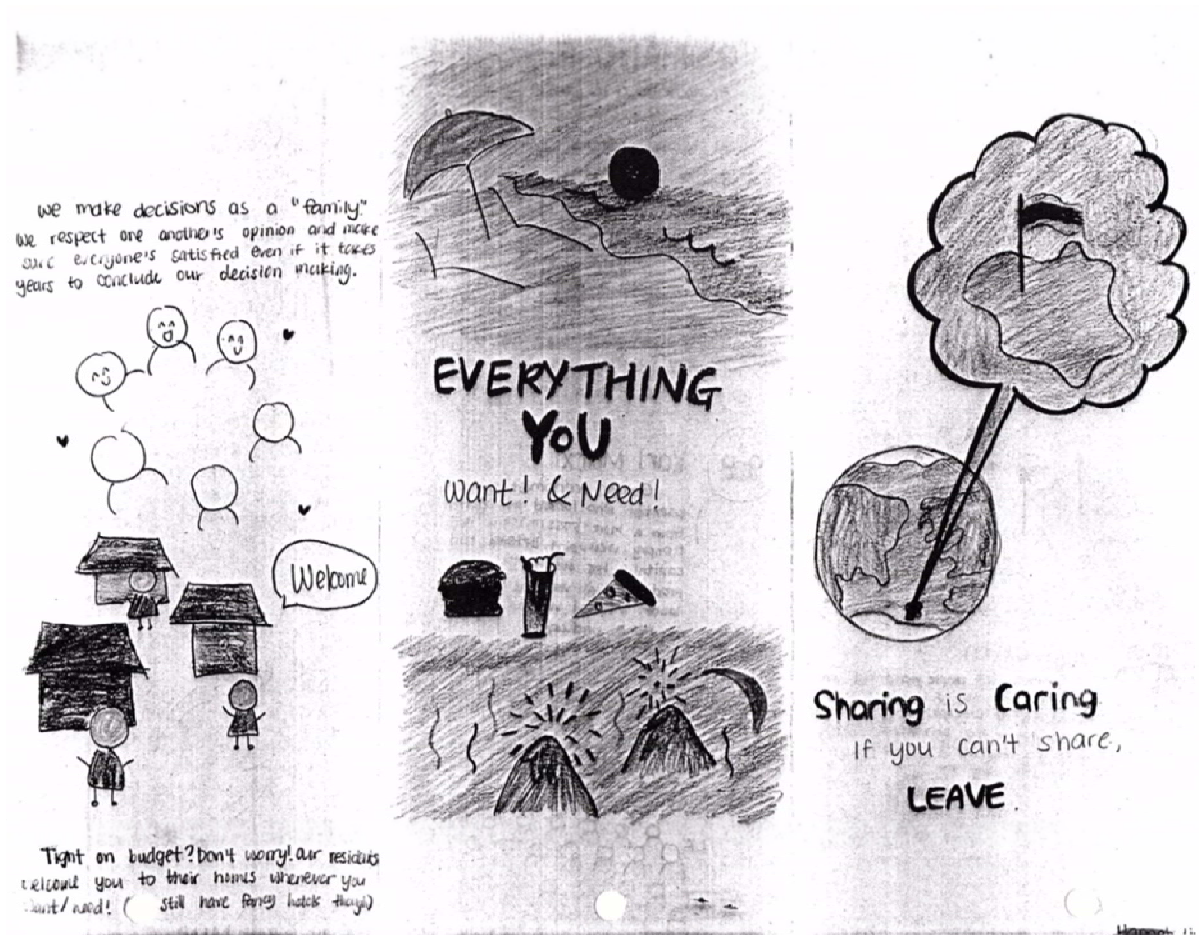 We make decisions as a "family."
We respect one another's opinion and make
sure everyone's satisfied even if it takes
years to conclude our decision making.
Welcome
Tight on budget? Don't worry! Our residents
welcome you to their homes whenever you
want/need! ( still have fancy hotels
EVERYTHING
YOU
Want! & Need!
Sharing is Caring
If you can't share,
LEAVE.